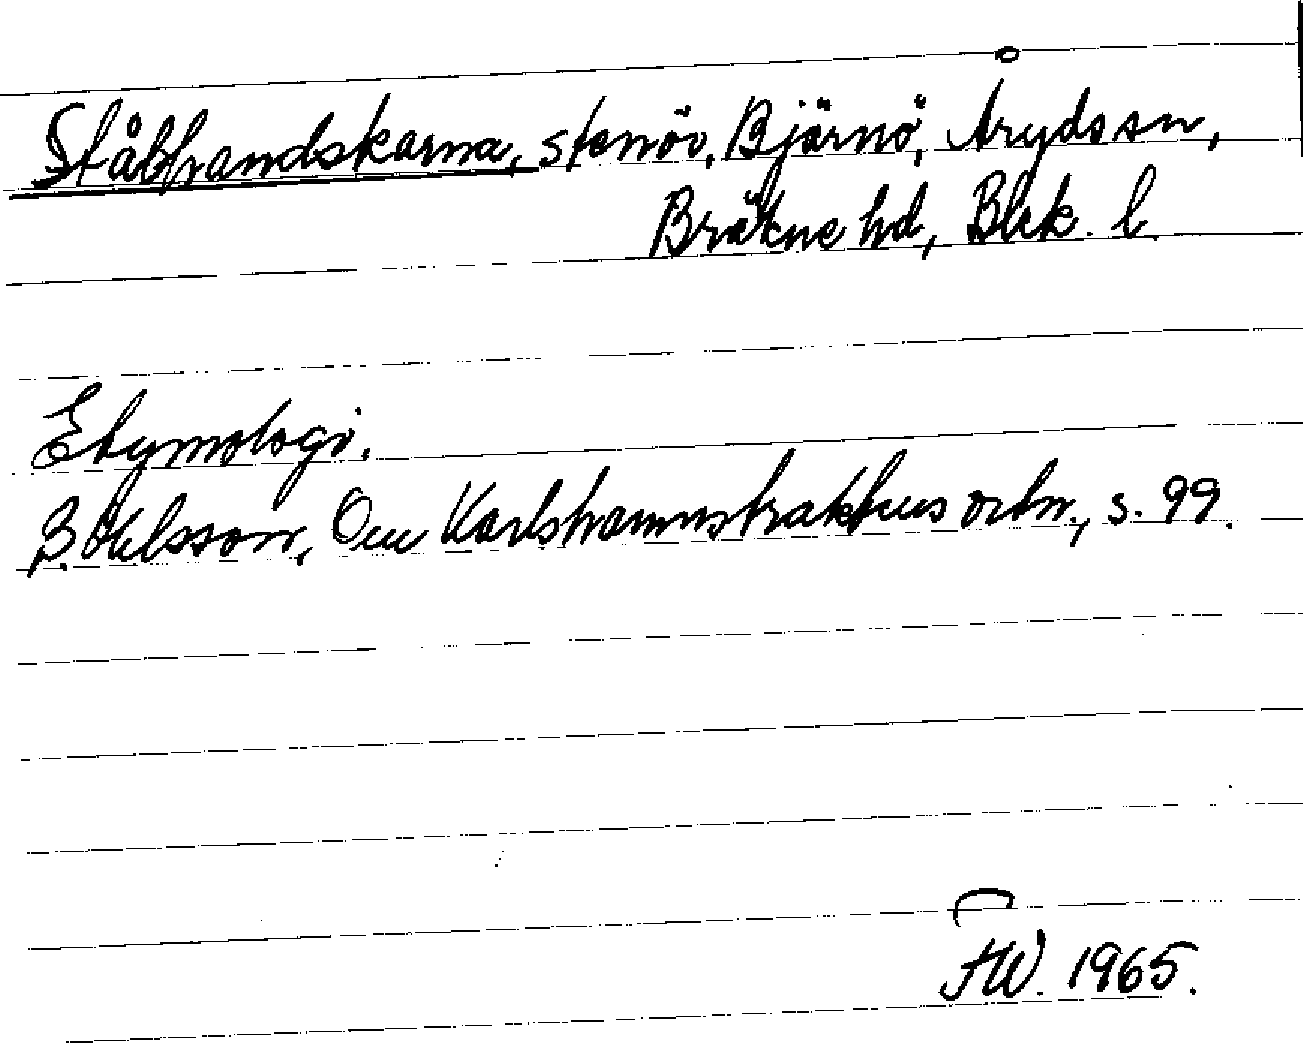 Stålhandskarna, stenör, Björnö, Åryds sn,
Bräkne hd, Blek. l.
Etymologi.
B. Ohlsson, Om Karlshamnstraktens ortn., s. 99.
FW. 1965.